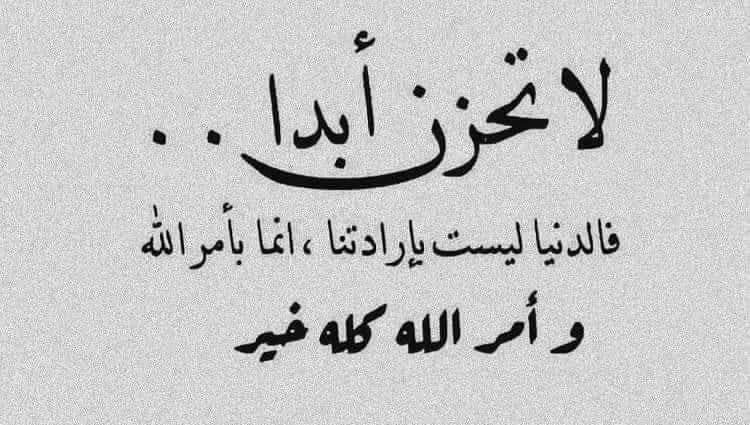 لا تحزن أبدا . .
فالدنيا ليست بإرادتنا ، انما بأمر الله
و أمر الله كله خير